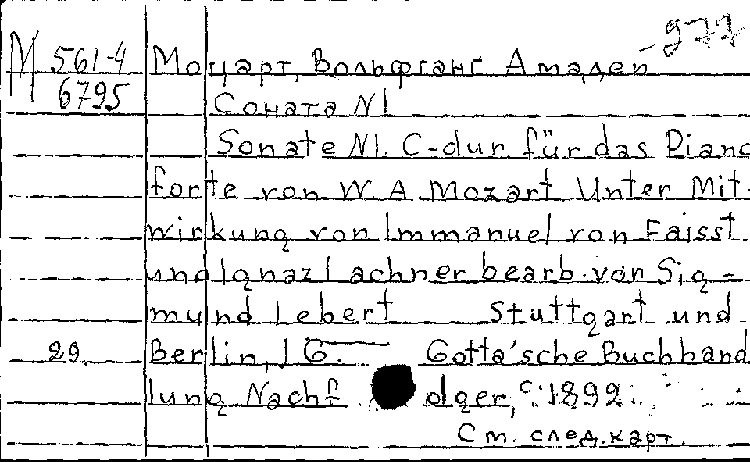 -977
М 561-4 Моцарт, Вольфганг Амадей
6795 Соната N1
Sonate N1. C-dur für das Piano
forte von W A Mozart Unter Mit-
wirkung von Immanuel von Faisst
und Ignaz Lachner bearb. von Sig-
mund Lebert Stuttgart und
29. Berlin, J G. Cotta'sche Buchhand
lung Nachf 1892.
См. след. карт.